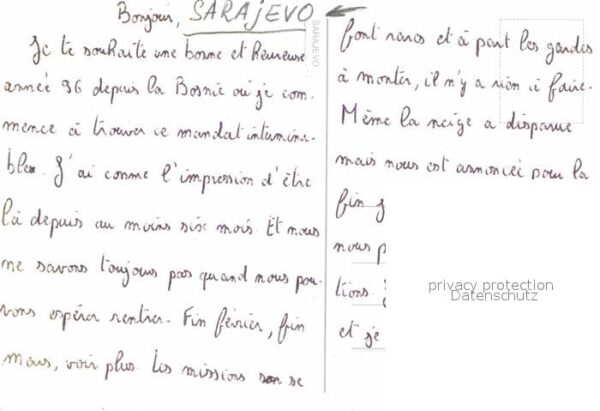 Bonjour, SARAJEVO
SARAJEVO
Je te souhaite une bonne et heureuse
année 96 depuis la Bosnie où je com-
mence à trouver ce mandat intermina-
ble. J'ai comme l'impression d'être
là depuis au moins six mois. Et nous
ne savons toujours pas quand nous pou-
vons espérer rentrer. Fin février, fin
mars, voir plus. Les missions se
font rares et à part les gardes
à monter, il n'y a rien à faire.
Même la neige a disparue
mais nous est annoncée pour la
fin j
nous p
tions
et je
privacy protection
Datenschutz